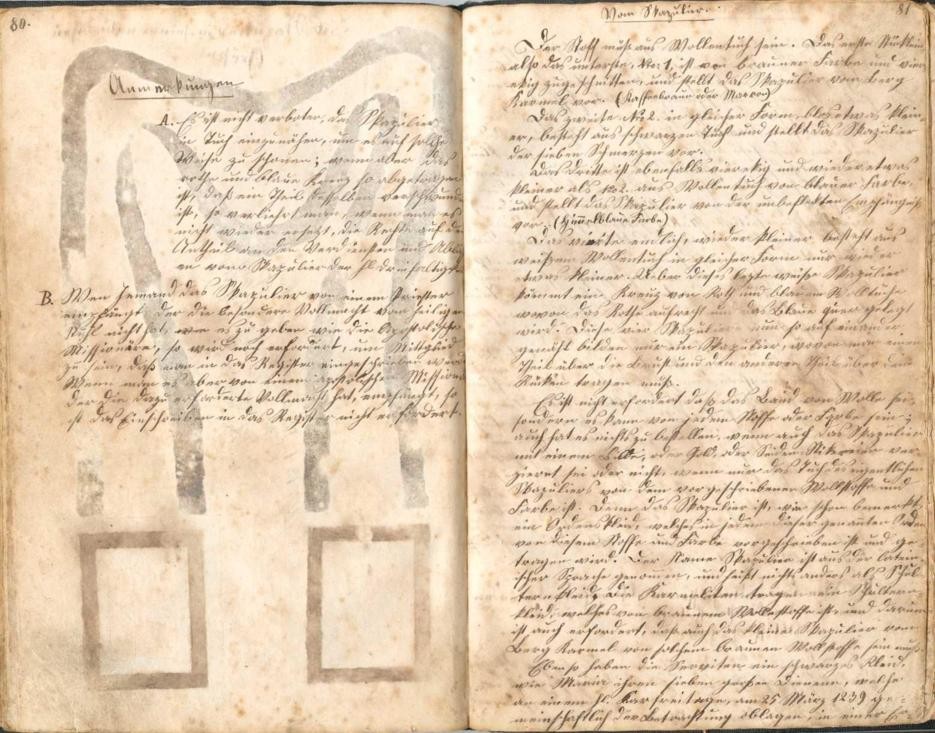 80.
Anmerkungen
A. Es ist nicht verboten, das Skapulier
in Tuch einzunähen, um es auf solche
Weise zu schonen; wenn aber das
rothe und blaue Kreuz so abgetragen
ist, daß ein Theil desselben verschwunden
ist, so verliehrt man, wenn man es
nicht wieder ersetzt, die Rechte auf den
Antheil an den Verdiensten und Abläß
en vom Skapulier der hl. dreifaltigkeit
B. Wen Jemand das Skapulier von einem Priester
empfängt, der die besondere Vollmacht vom heiligen
Stuhl nicht hat, um es zu geben wie die Apostolische
Missionäre, so wird noch erfordert, um Mitglied
zu sein, daß man in das Register eingeschrieben werde
Wenn man es aber von einem apostolischen Mission
der die dazu erforderte Vollmacht hat, empfängt, so
ist das Einschreiben in das Register nicht erfordert.
Vom Skapulier.
81
Der Stoff muß aus Wollentuch sein. Das erste Stücklein
also das unterste, No. 1, ist von brauner Farbe und vier
ekig zugeschnitten, und stellt das Skapulier vom Berg
Karmel vor. (Kaffeebraun oder Maron)
Das zweite No. 2. in gleicher Form, blos etwas klein
er, besteht aus schwarzen Tuch und stellt das Skapulier
der sieben Schmerzen vor.
Das Dritte ist ebenfalls vierekig und wieder etwas
kleiner als No. 2. aus Wollentuch von blauer Farbe,
und stellt das Skapulier von der unbeflekten Empfängniß
vor; (Himmelblaue Farbe)
Das vierte endlich, wieder kleiner besteht aus
weißem Wollentuch in gleicher Form nur wieder
etwas kleiner. Ueber dieses lezte weiße Skapulier
kömmt ein Kreuz von Roth und blauem Wolltuche
wovon das Rothe aufrecht und das Blaue quer gelegt
wird. Diese vier Skapuliere nun so auf einander
genäht bilden nur ein Skapulier, wovon man einen
Theil über die Brust und den anderen Theil über den
Rücken tragen muß.
Es ist nicht erfordert daß das Band von Wolle sei,
sondern es kann von jedem Stoffe oder Farbe sein;
auch hat es nichts zu bestellen, wenn auch das Skapulier
mit einem oder Gold, oder Seiden Stikereien ver
ziert sei oder nicht, wenn nur das Tuch des eigentlichen
Skapuliers von dem vorgeschriebenen Wollstoffe und
Farbe ist. Denn das Skapulier ist, wie schon bemerkt,
ein Ordenskleid, welches in jedem dieser genannten Orden
von diesem Stoffe und Farbe vorgeschrieben ist und ge
tragen wird. Der Name Skapulier ist aus der latein
ischer Sprache genommen, und heißt nichts anders als Schul
ternkleid. Die Karmeliten tragen ein Schultern
kleid, welches von braunem Wollestoffe ist, und darum
ist auch erfordert, daß auch das kleine Skapulier vom
Berg Karmel von solchem braunen Wollstoffe sein muß.
Ebenso haben die Serviten ein schwarzes Kleid,
wie Maria ihren sieben großen Dienern, welche
an einem hl. Karfreitage, am 25 März 1239 ge-
meinschaftlich der Betrachtung oblagen, in einer Er-